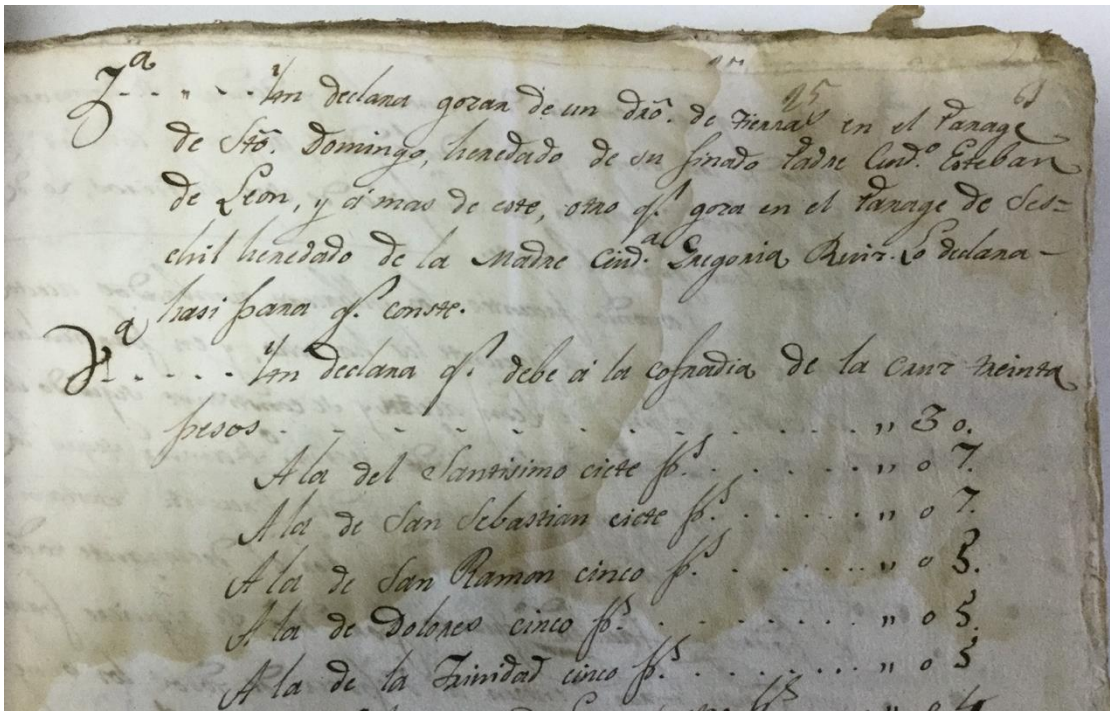 25 61
7.ª - - „ - - . Ytn declara gozar de un dro. de tierras en el Parage
de Sto. Domingo, heredado de su finado Padre Ciud.º Esteban
de Leon, y á mas de este, otro q.e goza en el Parage de Ses=
chil heredado de la Madre Ciud.ª Gregoria Ruiz. Lo declara -
hasi para q.e conste.
- - - - - Ytn declara q.e debe á la cofradia de la Cruz treinta
pesos - - - - - - - - - - - „ 30.
A la del Santisimo ciete p.s . . . . . „ 0 7.
A la de San Sebastian ciete p.s . . . . „ 0 7.
A la de San Ramon cinco p.s . . . . . . „ 0 5.
A la de Dolores cinco p.s . . . . . . . „ 0 5.
A la de la Trinidad cinco p.s . . . . . . „ 0 5